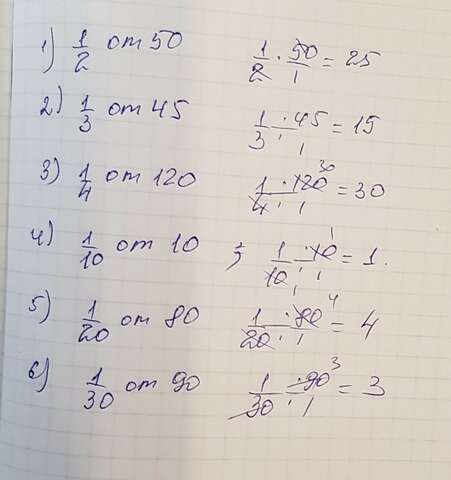 1) 1/2 от 50 1/2 · 50/1 = 25
2) 1/3 от 45 1 · 45/3 · 1 = 15
3) 1/4 от 120 1 · 120/4 · 1 30 = 30
4) 1/10 от 10 ; 1 · 10/10 · 1 1 1 = 1.
5) 1/20 от 80 1 · 80/20 · 1 4 = 4
6) 1/30 от 90 1 · 90/30 · 1 3 = 3